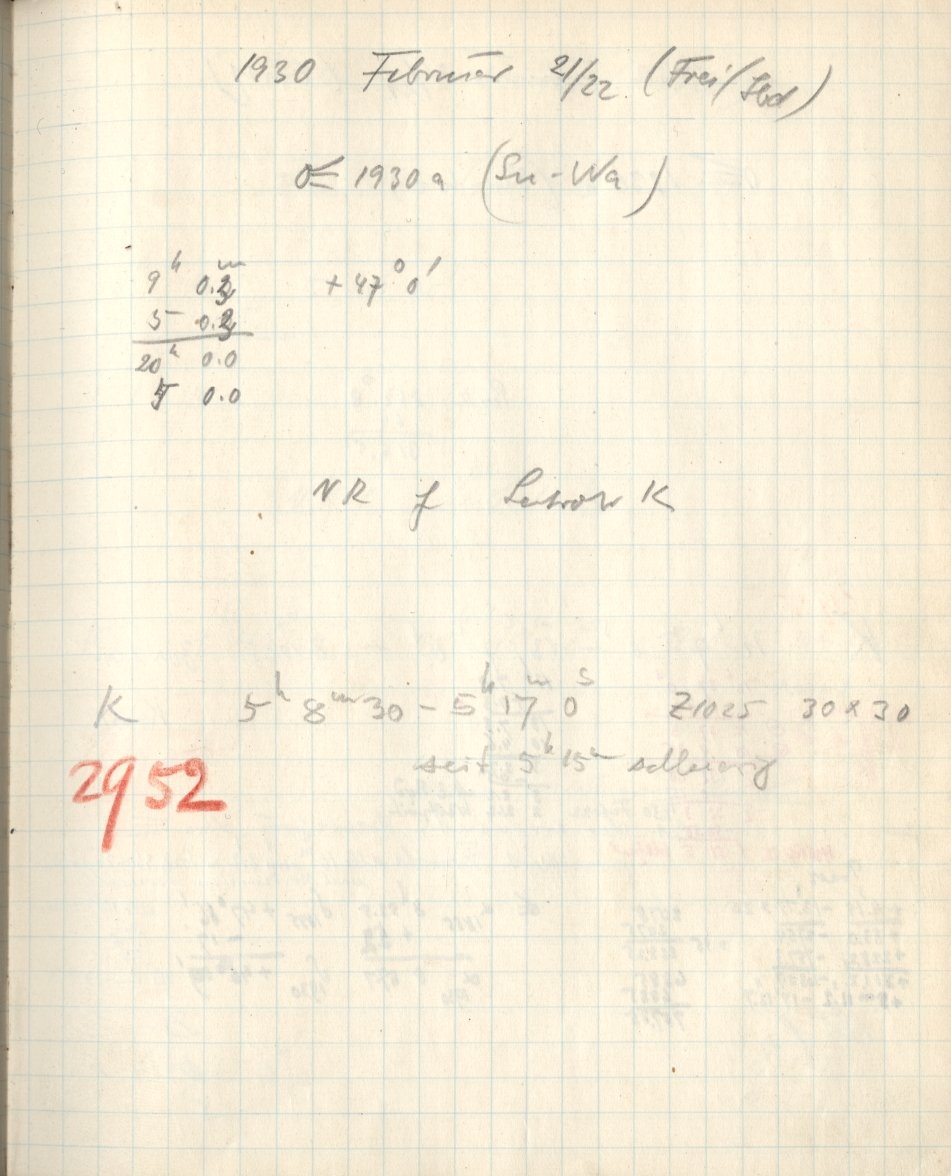 1930 Februar 21/22 (Frei/Sbd)
☄ 1930a (     - Wa)
9ʰ 0.2ᵐ +47° 0'
5 0.2
20ʰ 0.0
0.0
NR f K
K 5ʰ 8ᵐ 30 - 5ʰ 17ᵐ 0ˢ Z1025 30 x 30
2952 seit 5ʰ 15ᵐ schleierig